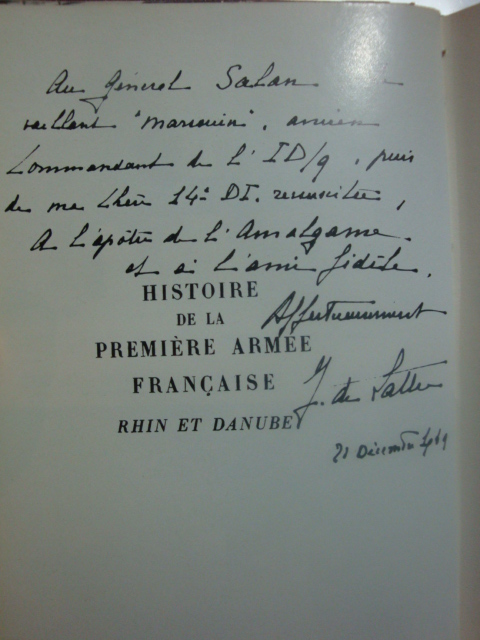 Au Général Salan
vaillant "marsouin", ancien
Commandant de l'ID/9, puis
de ma chère 14e DI. ressuscitée,
A l'apôtre de l'Amalgame.
et à l'ami fidèle.
HISTOIRE
DE LA
Affectueusement
PREMIÈRE ARMÉE
FRANÇAISE
J. de Lattre
RHIN ET DANUBE
21 Décembre 1949